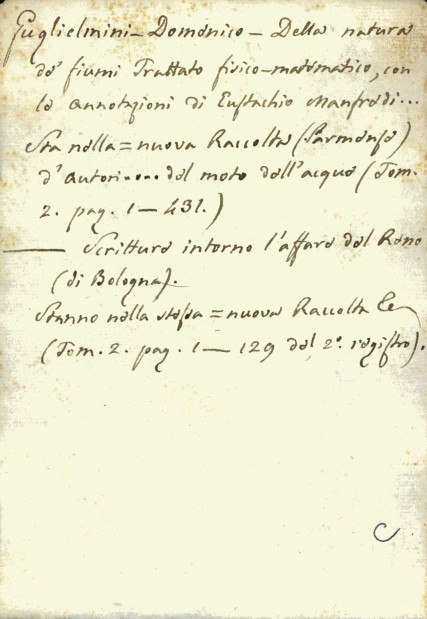 Guglielmini - Domenico - Della natura
de' fiumi Trattato fisico-matematico, con
le annotazioni di Eustachio Manfredi...
Sta nella = nuova Raccolta (Parmense)
d'autori .... del moto dell'acque (Tom.
2. pag. 1 — 431.)
— Scritture intorno l'affare del Reno
(di Bologna).
Stanno nella stessa = nuova Raccolta &c
(Tom. 2. pag. 1 — 129 del 2º registro).
C